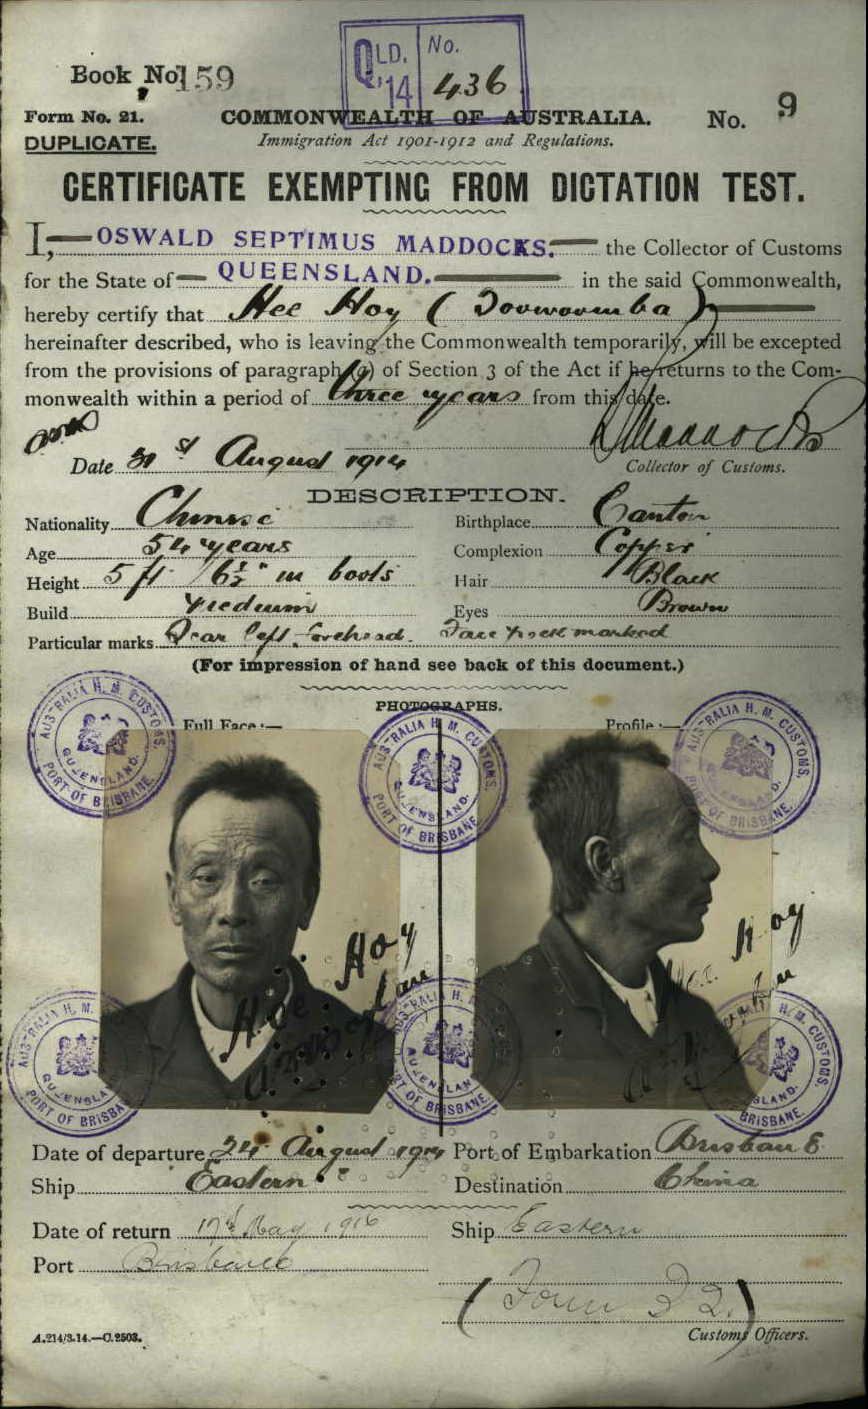 QLD. No.
'14 436
Book No. 159
Form No. 21. COMMONWEALTH OF AUSTRALIA. No. 9
DUPLICATE. Immigration Act 1901-1912 and Regulations.
CERTIFICATE EXEMPTING FROM DICTATION TEST.
I, OSWALD SEPTIMUS MADDOCKS. the Collector of Customs
for the State of QUEENSLAND. in the said Commonwealth,
hereby certify that Hee Hoy (Toowoomba)
hereinafter described, who is leaving the Commonwealth temporarily, will be excepted
from the provisions of paragraph (a) of Section 3 of the Act if he returns to the Com-
monwealth within a period of three years from this date.
Date 31st August 1914 Collector of Customs.
DESCRIPTION.
Nationality Chinese Birthplace Canton
Age 54 years Complexion Copper
Height 5 ft 6½" in boots Hair Black
Build Medium Eyes Brown
Particular marks Scar left forehead. Face pock marked
(For impression of hand see back of this document.)
PHOTOGRAPHS.
Full Face:— Profile:—
AUSTRALIA H. M. CUSTOMS. QUEENSLAND. PORT OF BRISBANE.
AUSTRALIA H. M. CUSTOMS. QUEENSLAND. PORT OF BRISBANE.
AUSTRALIA H. M. CUSTOMS. QUEENSLAND. PORT OF BRISBANE.
Hee Hoy
Hoy
AUSTRALIA H. M. QUEENSLA PORT OF BRISBAN
AUSTRALIA H. QUEENSLAND PORT OF BRISBANE.
H. M. CUSTOMS. SLAND. BRISBANE.
Date of departure 24 August 1914 Port of Embarkation Brisbane
Ship Eastern Destination China
Date of return 17th May 1916 Ship Eastern
Port Brisbane
(Form 32.)
A.214/3.14.—C.2503. Customs Officers.